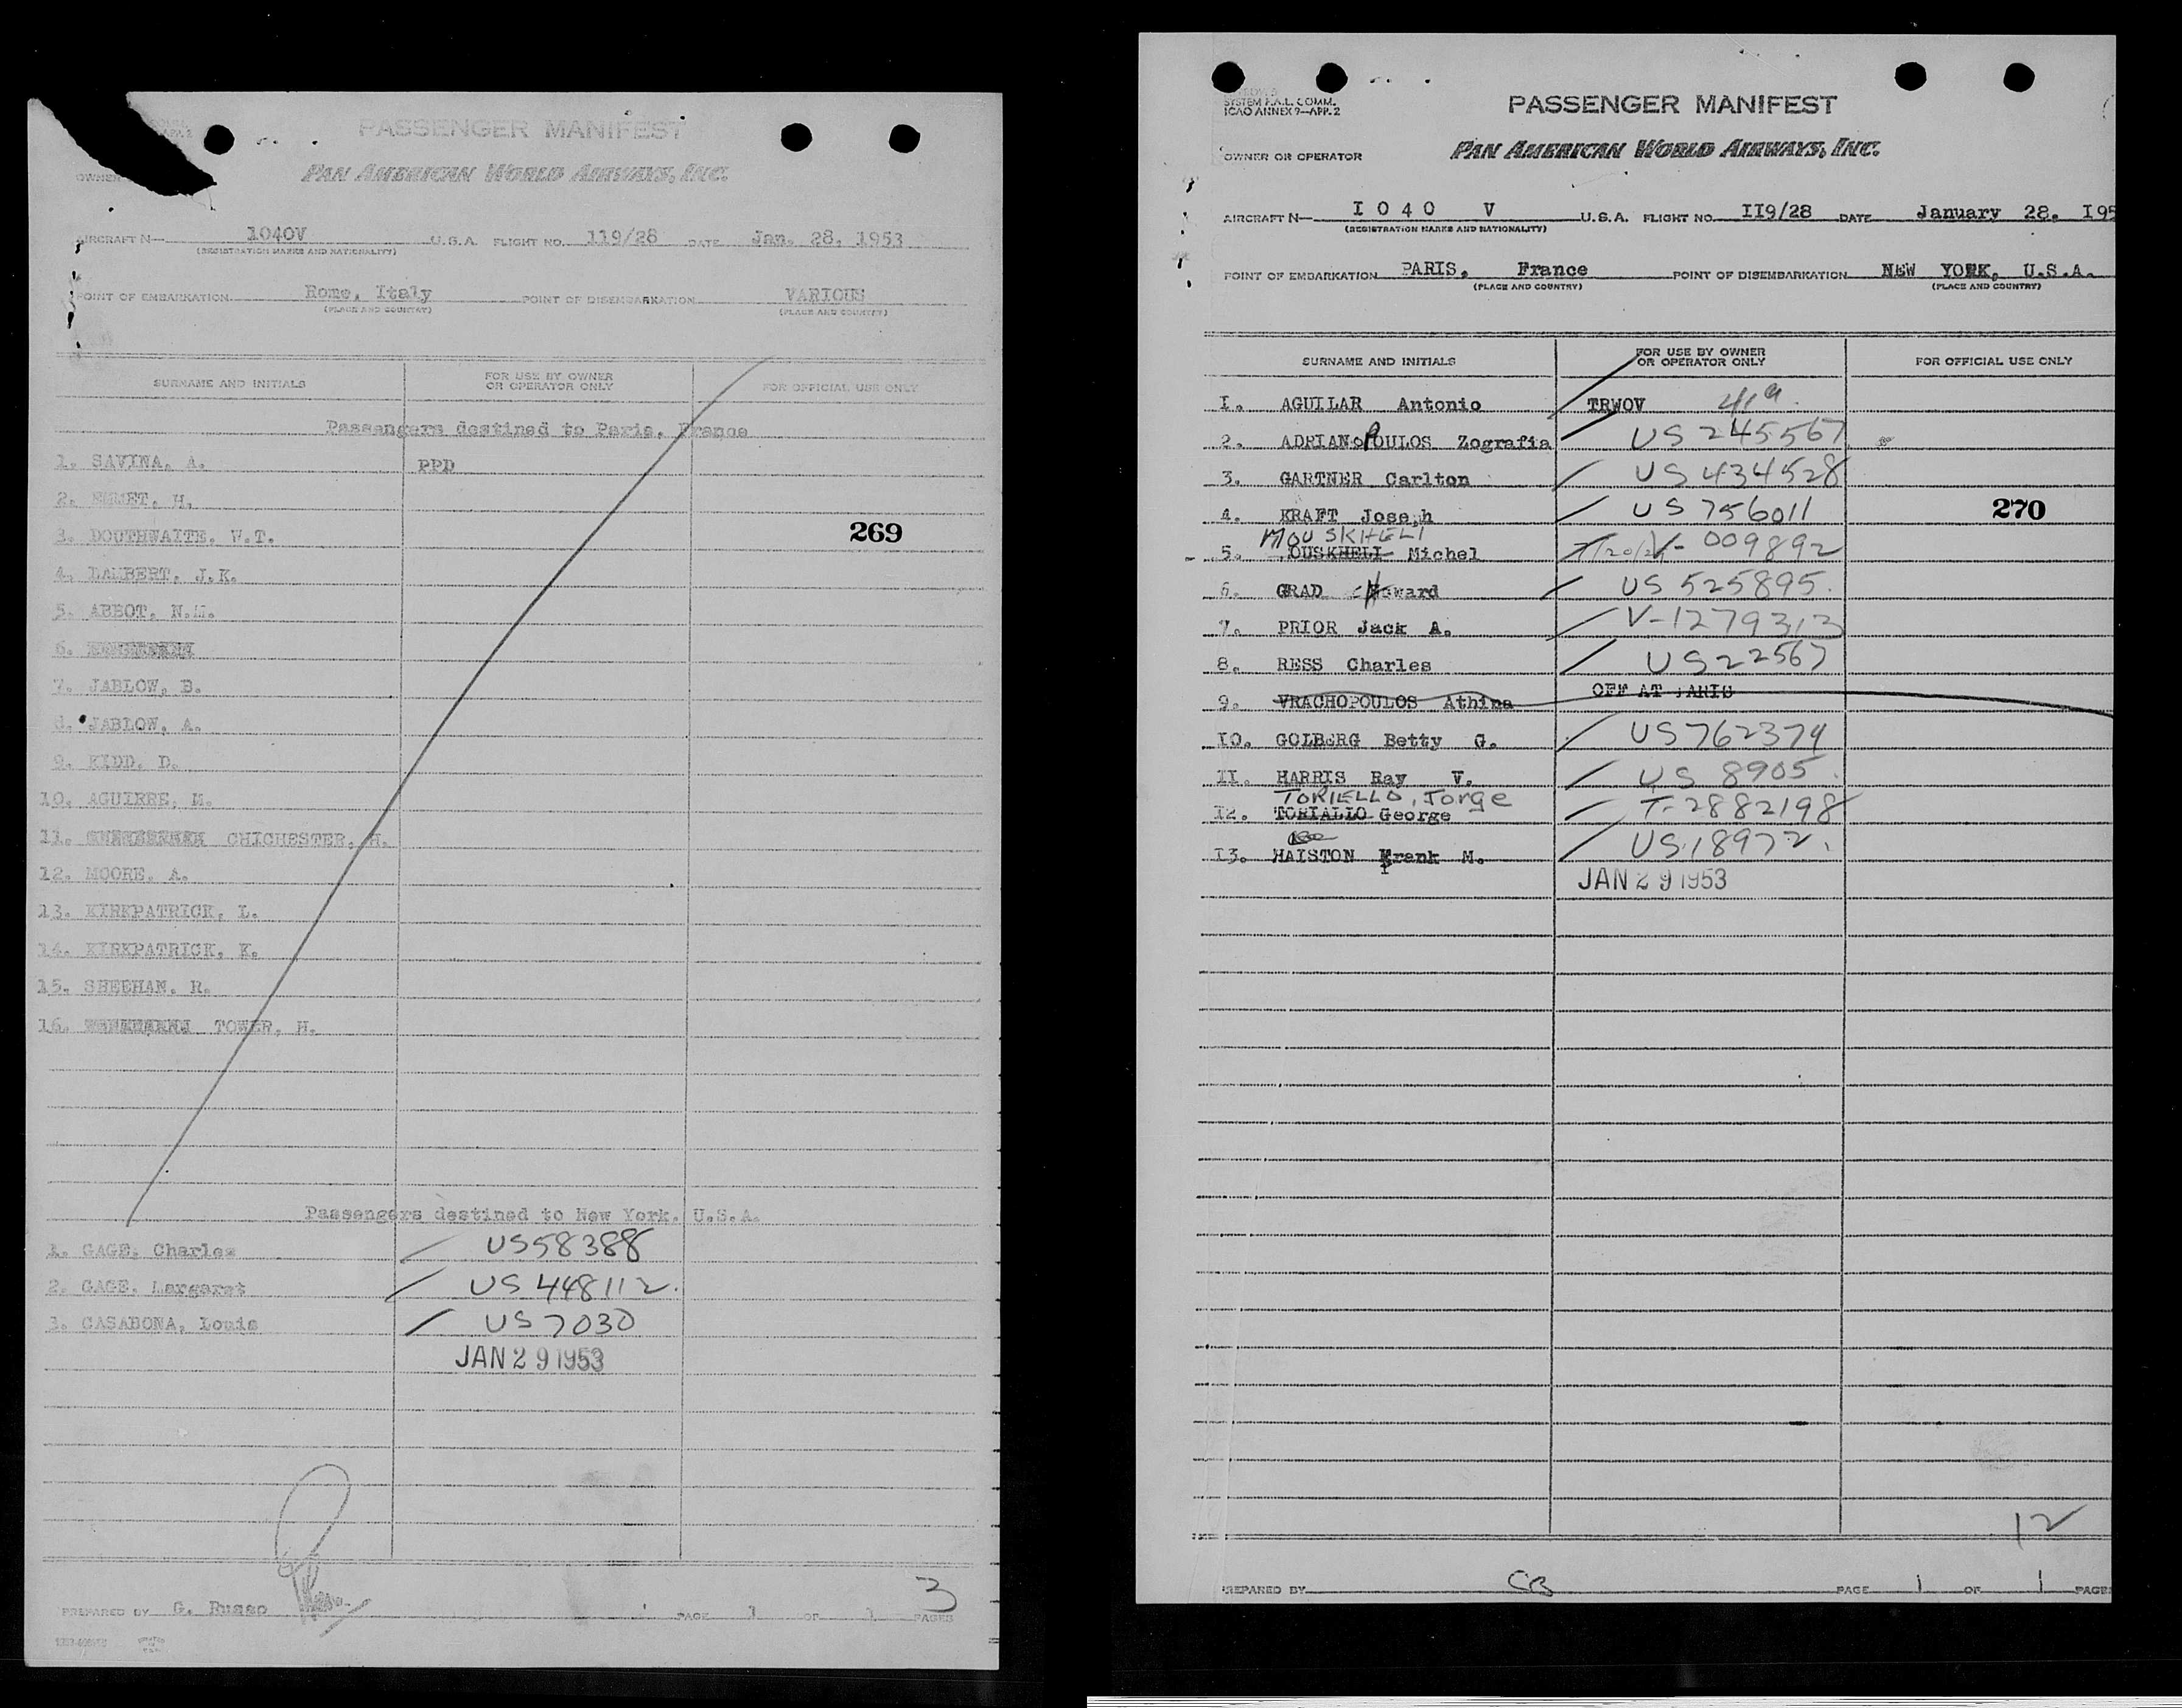 PASSENGER MANIFEST
PAN AMERICAN WORLD AIRWAYS, INC.
OWNER
AIRCRAFT N— 1040V U.S.A. FLIGHT NO. 119/28 DATE Jan. 28, 1953
(REGISTRATION MARKS AND NATIONALITY)
POINT OF EMBARKATION Rome, Italy POINT OF DISEMBARKATION VARIOUS
(PLACE AND COUNTRY) (PLACE AND COUNTRY)
SURNAME AND INITIALS FOR USE BY OWNER OR OPERATOR ONLY FOR OFFICIAL USE ONLY
Passengers destined to Paris, France
1. SAVINA, A. PPD
2. EMMET, H.
3. DOUTHWAITE, W.T. 269
4. LAMBERT, J.K.
5. ABBOT, N.M.
6.
7. JABLOW, B.
8. JABLOW, A.
9. KIDD, D.
10. AGUIRRE, M.
11. CHICHESTER, H.
12. MOORE, A.
13. KIRKPATRICK, L.
14. KIRKPATRICK, K.
15. SHEEHAN, R.
16. TOWER, H.
Passengers destined to New York, U.S.A.
1. GAGE, Charles US58388
2. GAGE, Largaret US 448112.
3. CASABONA, Louis US 7030
JAN 29 1953
3
PREPARED BY G. Russo PAGE 1 OF 1 PAGES
SYSTEM F.A.L. COMM.
ICAO ANNEX 9—APP. 2
PASSENGER MANIFEST
OWNER OR OPERATOR PAN AMERICAN WORLD AIRWAYS, INC.
AIRCRAFT N— I 0 4 0 V U.S.A. FLIGHT NO. II9/28 DATE January 28, I95
(REGISTRATION MARKS AND NATIONALITY)
POINT OF EMBARKATION PARIS, France POINT OF DISEMBARKATION NEW YORK, U.S.A.
(PLACE AND COUNTRY) (PLACE AND COUNTRY)
SURNAME AND INITIALS FOR USE BY OWNER OR OPERATOR ONLY FOR OFFICIAL USE ONLY
I. AGUILAR Antonio TRWOV 41a.
2. ADRIANOPOULOS Zografia US 245567
3. GARTNER Carlton US 434528
4. KRAFT Joseph US 756011 270
MOUSKHELI
5. OUSKHELI Michel V- 009892
6. GRAD Howard US 525895.
7. PRIOR Jack A. V-1279313
8. RESS Charles US22567
9. VRACHOPOULOS Athina OFF AT PARIS
IO. GOLBERG Betty G. US762379
II. HARRIS Ray V. US 8905.
TORIELLO, Jorge
I2. TORIALLO George T-2882198
I3. HAISTON Frank M. US 18972.
JAN 29 1953
12
PREPARED BY CB PAGE 1 OF 1 PAGES